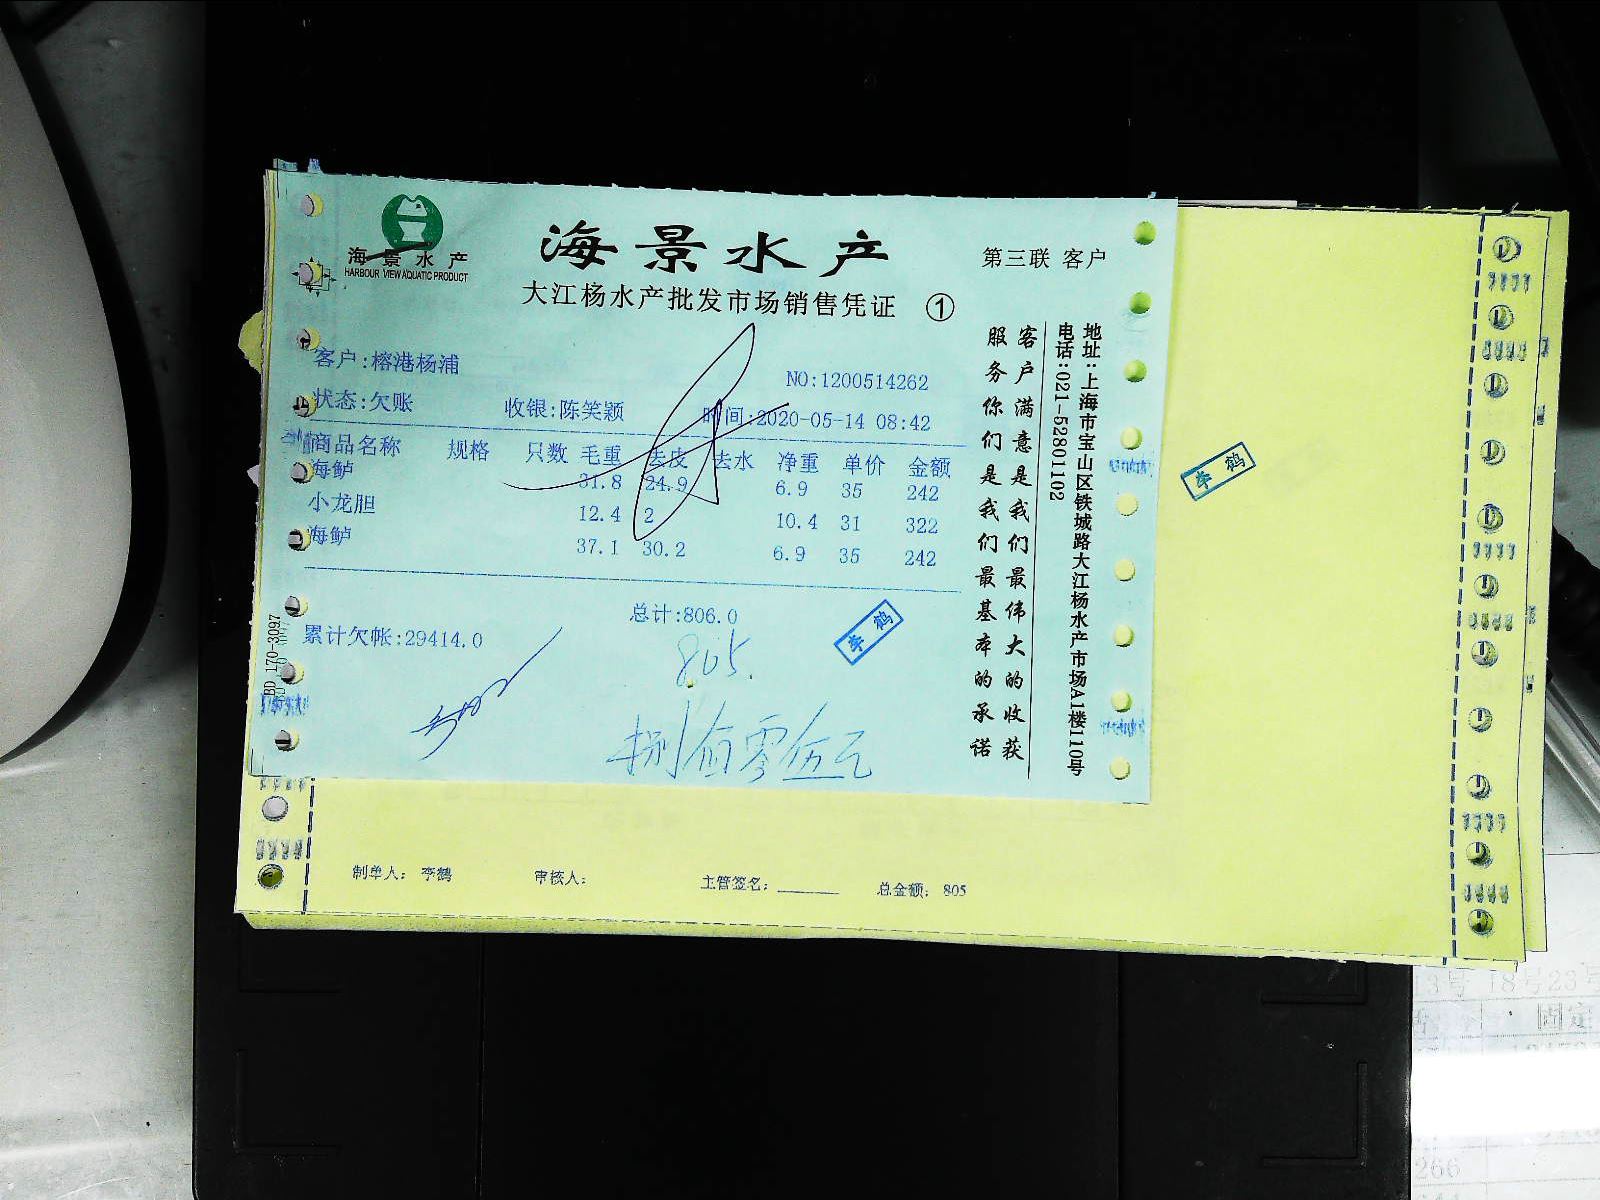 海景水产
HARBOUR VIEW AQUATIC PRODUCT
海景水产
第三联 客户
大江杨水产批发市场销售凭证 ①
客户:榕港杨浦
NO:1200514262
状态:欠账 收银:陈笑颖 时间:2020-05-14 08:42
商品名称 规格 只数 毛重 去皮 去水 净重 单价 金额
海鲈 31.8 24.9 6.9 35 242
小龙胆 12.4 2 10.4 31 322
海鲈 37.1 30.2 6.9 35 242
总计:806.0
累计欠帐:29414.0
805.
捌佰零伍元
李鹤
客户满意是我们最伟大的收获
服务你们是我们最基本的承诺
地址:上海市宝山区铁城路大江杨水产市场A1楼110号
电话:021-52801102
BD 170-3097
李鹤
制单人: 李鹤 审核人: 主管签名: 总金额: 805
13号 18号23号
固定
266